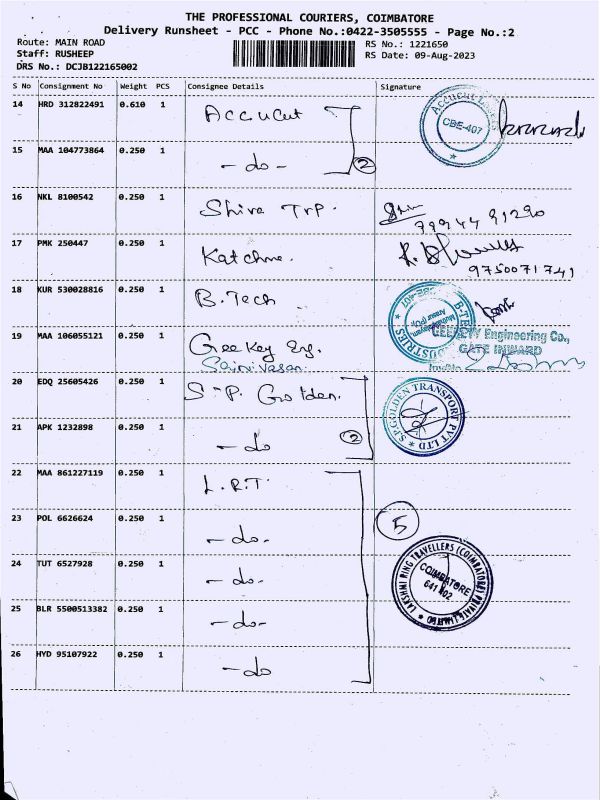 THE PROFESSIONAL COURIERS, COIMBATORE
Delivery Runsheet - PCC - Phone No.:0422-3505555 - Page No.:2
Route: MAIN ROAD
RS No.: 1221650
Staff: RUSHEEP
RS Date: 09-Aug-2023
DRS No.: DCJB122165002
S No Consignment No Weight PCS Consignee Details Signature
14 HRD 312822491 0.610 1 Accucut
CBE-407
15 MAA 104773864 0.250 1 - do - 2
16 NKL 8100542 0.250 1 Shiva Trp.
99944 91290
17 PMK 250447 0.250 1 Katchme.
9750071741
18 KUR 530028816 0.250 1 B.Tech
19 MAA 106055121 0.250 1 Geekey Eng.
Engineering Co.,
GATE INWARD
20 EDQ 25605426 0.250 1 S.P. Golden.
S.P.GOLDEN TRANSPORT PVT LTD
21 APK 1232898 0.250 1 - do 2
22 MAA 861227119 0.250 1 L.R.T.
23 POL 6626624 0.250 1 - do - 5
24 TUT 6527928 0.250 1 - do -
LAKSHMI RING TRAVELLERS (COIMBATORE) PRIVATE LIMITED
COIMBATORE
641 402
25 BLR 5500513382 0.250 1 - do -
26 HYD 95107922 0.250 1 - do